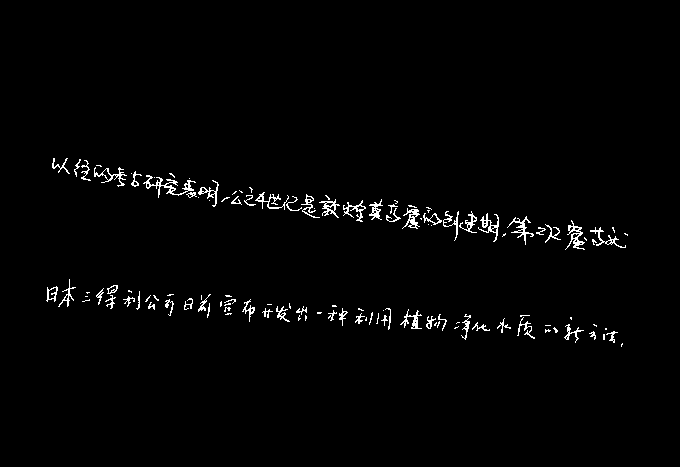 以往的考古研究表明,公元4世纪是敦煌莫高窟的创建期,第二次
日本三得利公司日前宣布开发出一种利用植物净化水质的新方法.